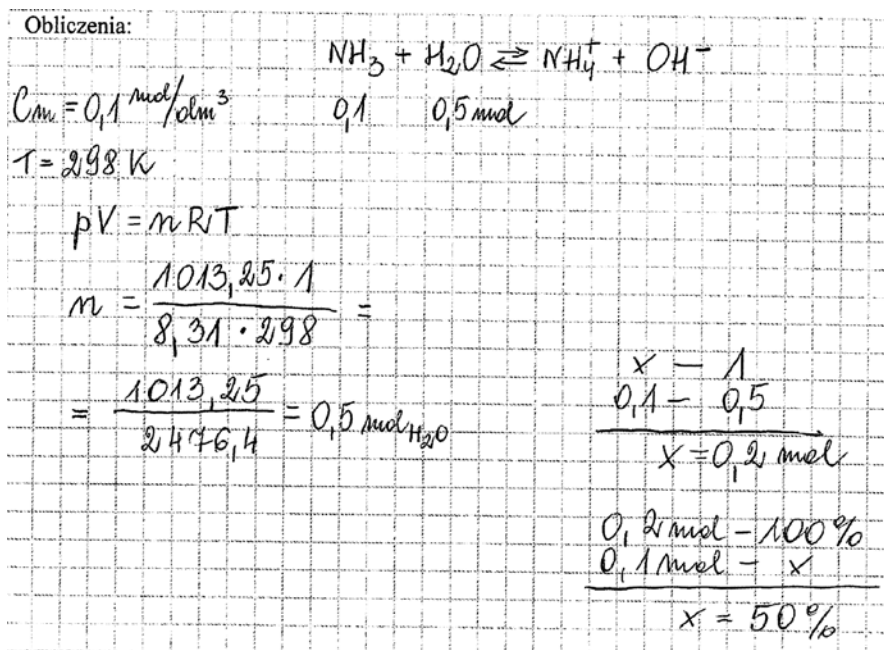 Obliczenia:
NH₃ + H₂O ⇄ NH₄⁺ + OH⁻
Cm = 0,1 mol/dm³ 0,1 0,5 mol
T = 298 K
pV = nRT
n = 1013,25 · 1 / 8,31 · 298 =
= 1013,25 / 2476,4 = 0,5 mol H₂O
x — 1
0,1 — 0,5
x = 0,2 mol
0,2 mol — 100%
0,1 mol — x
x = 50%